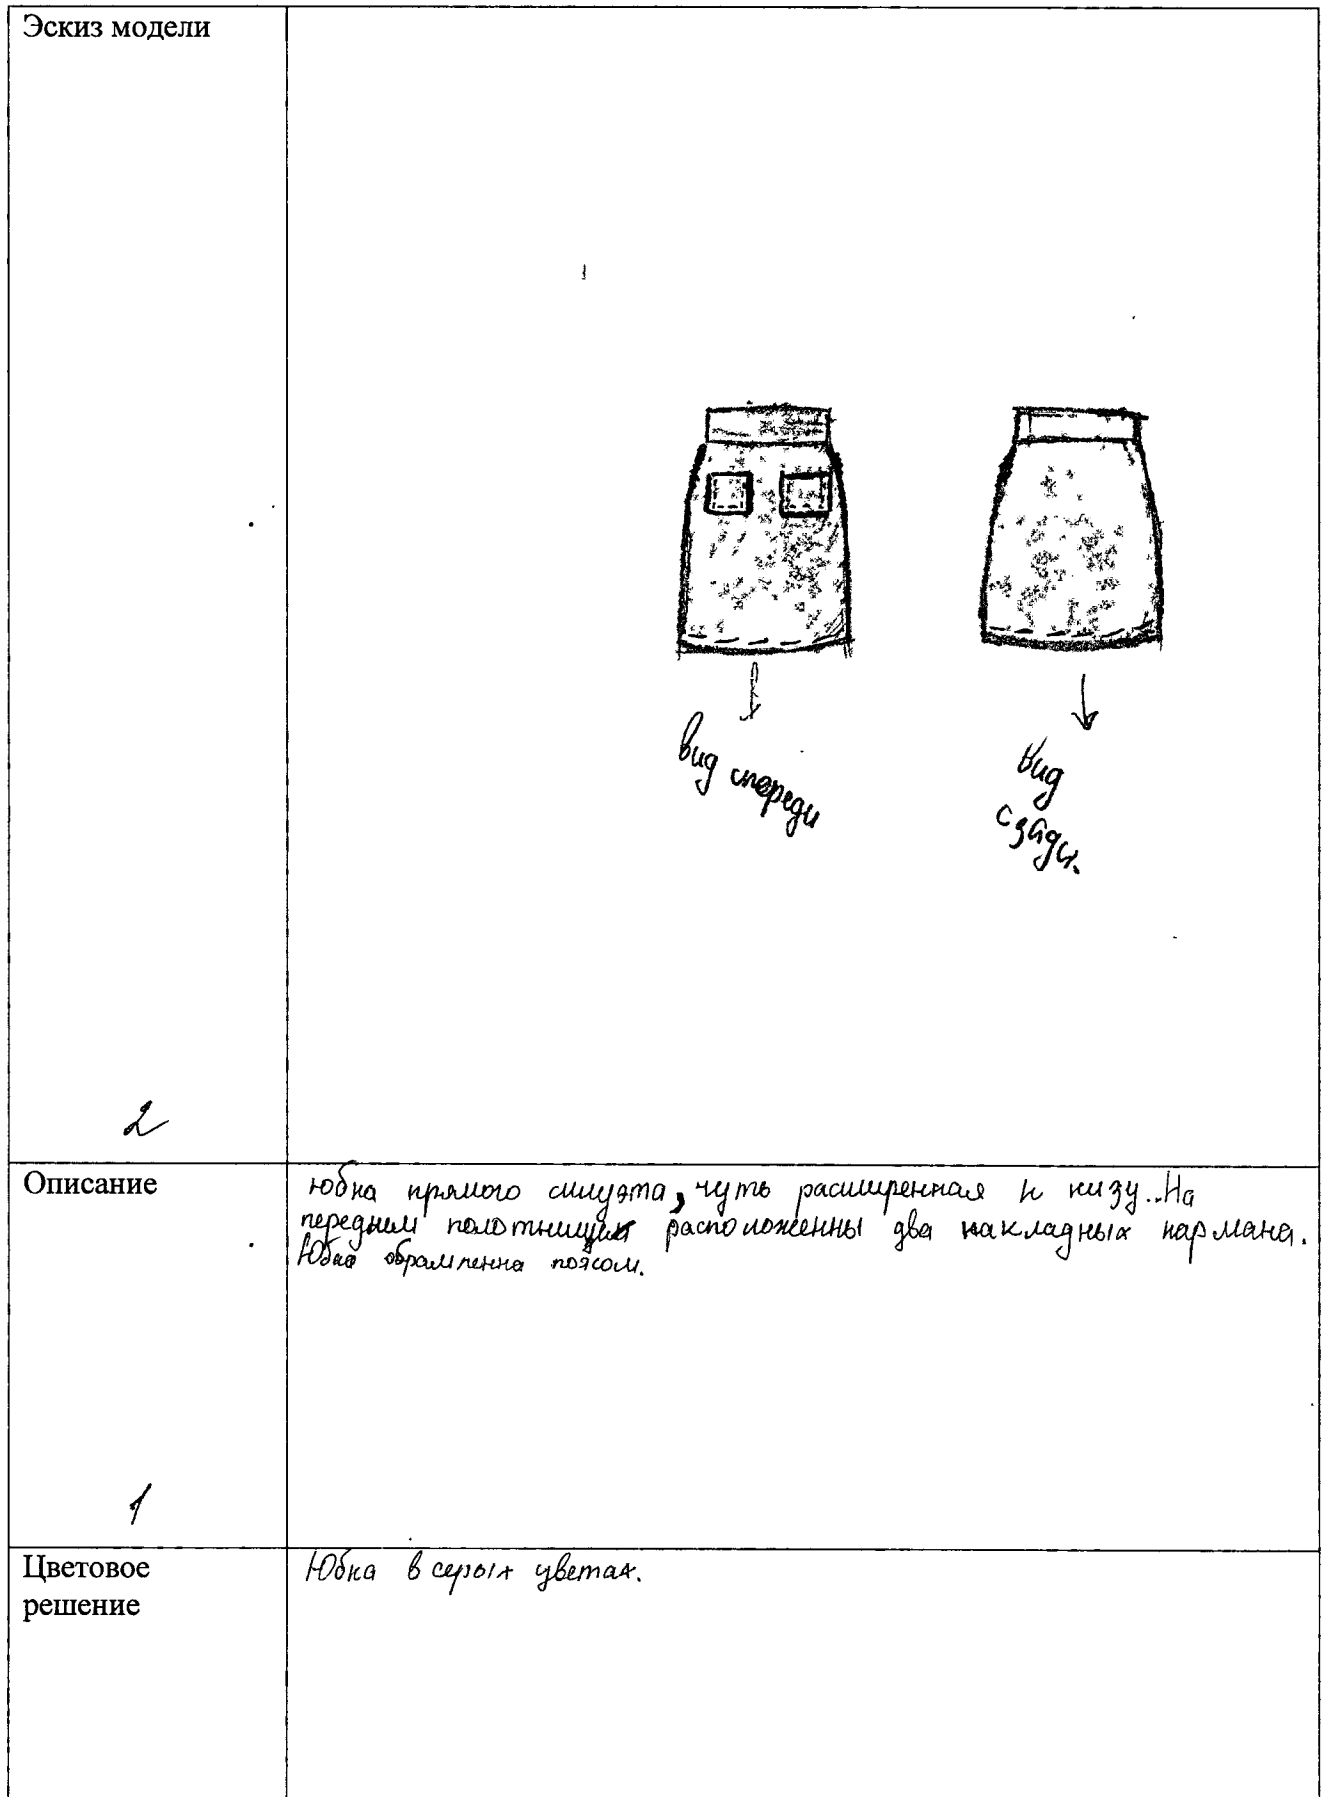 Эскиз модели
вид спереди
вид
сзади.
2
Описание
юбка прямого силуэта, чуть расширенная к низу. На
передним полотнище расположенны два накладных кармана.
Юбка обрамленна поясом.
1
Цветовое
решение
Юбка в серых цветах.